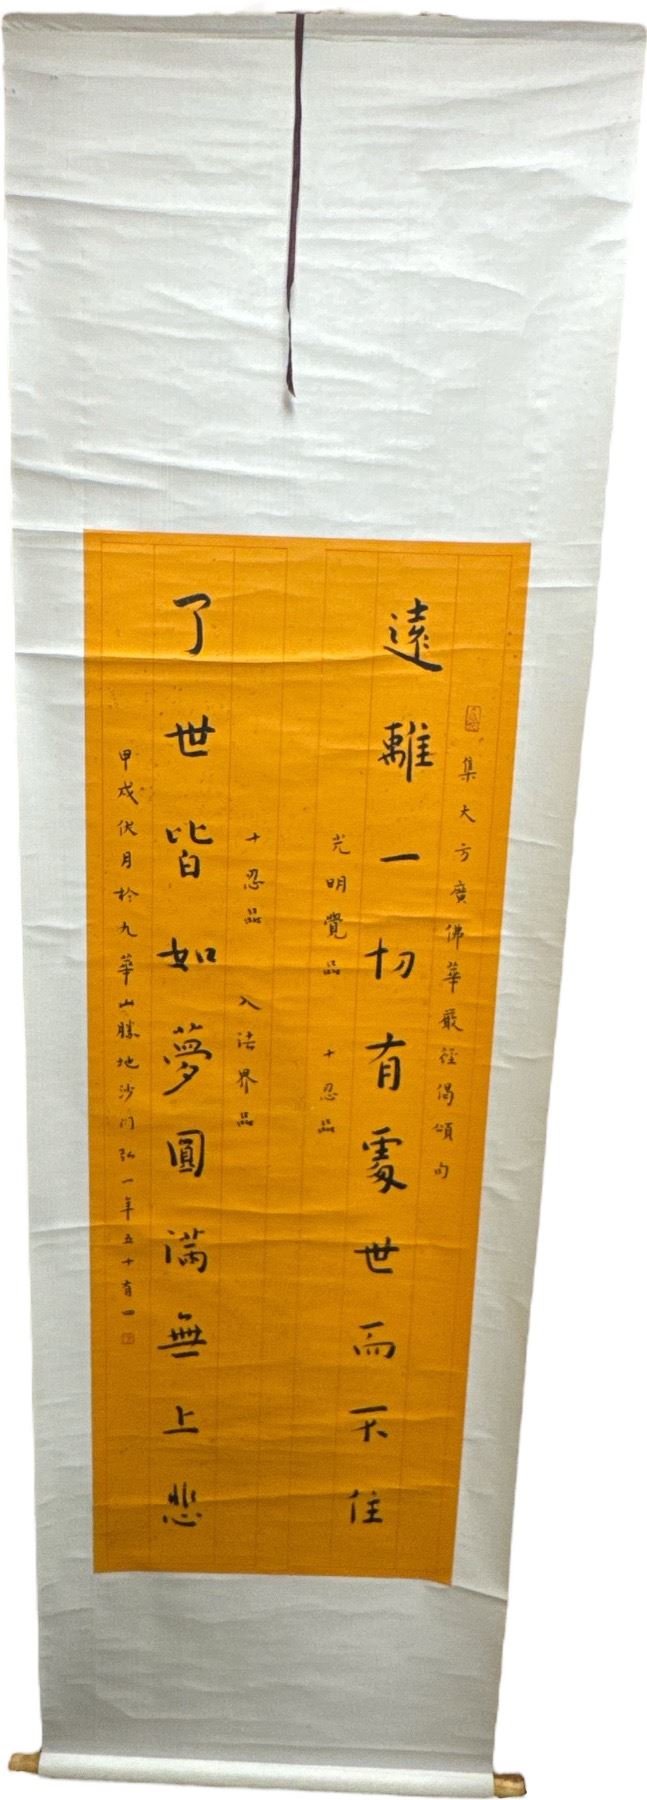 集大方廣佛華嚴經偈頌句
遠離一切有處世而不住
光明覺品 十忍品
十忍品 入法界品
了世皆如夢圓滿無上悲
甲戌伏月於九華山勝地沙门弘一年五十有四